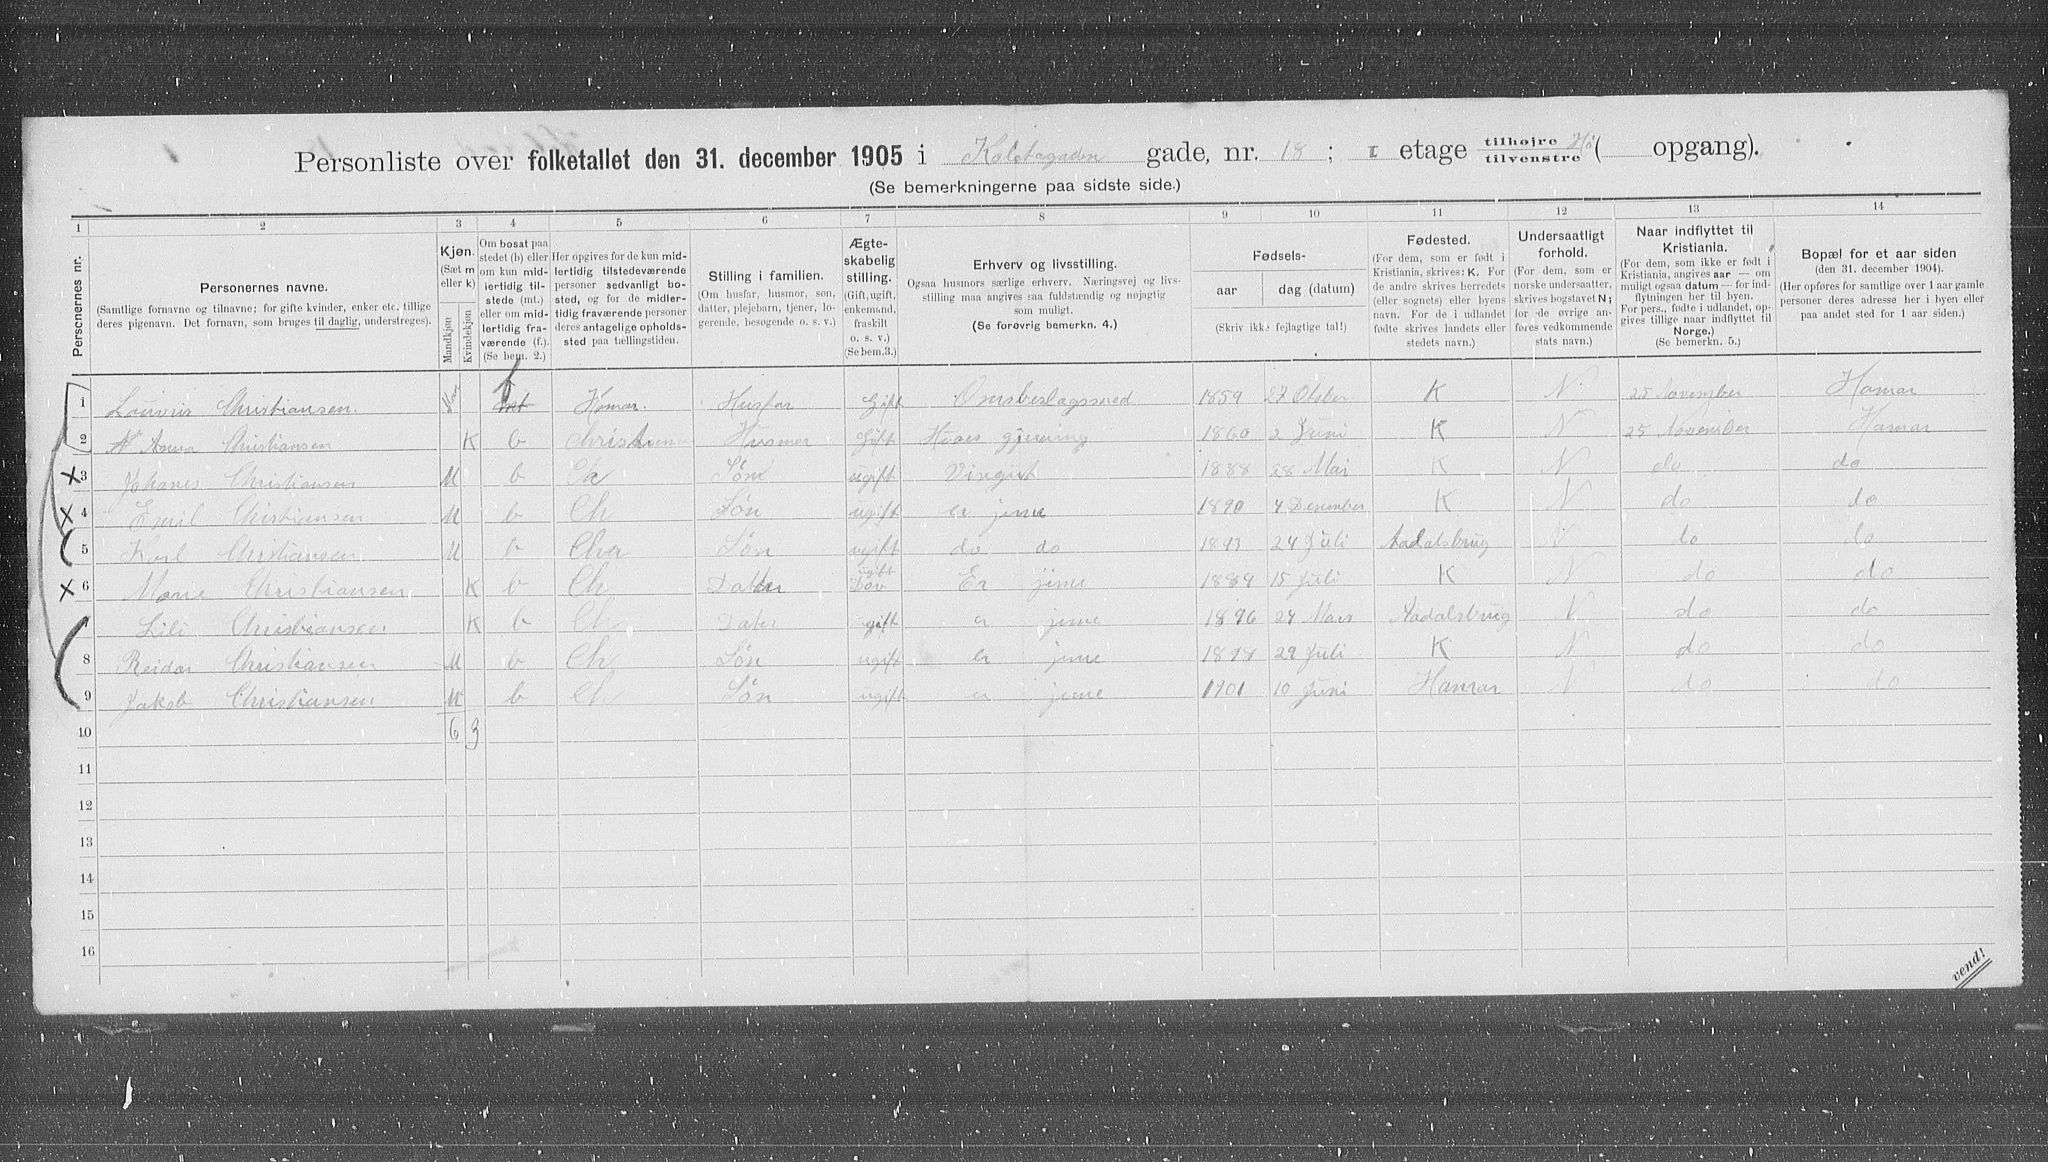 Personliste over folketallet den 31. december 1905 i Kolstagaden gade, nr. 18 ; I etage tilhøjre Hø ( opgang).
tilvenstre
(Se bemerkningerne paa sidste side.)
1 2 3 4 5 6 7 8 9 10 11 12 13 14
Personernes nr.
Personernes navne.
(Samtlige fornavne og tilnavne; for gifte kvinder, enker etc. tillige
deres pigenavn. Det fornavn, som bruges til daglig, understreges).
Kjøn.
(Sæt m
eller k)
Mandkjøn
Kvindekjøn
Om bosat paa
stedet (b) eller
om kun mid-
lertidig til-
stede (mt.)
eller om mid-
lertidig fra-
værende (f.).
(Se bem. 2.)
Her opgives for de kun mid-
lertidig tilstedeværende
personer sedvanligt bo-
sted, og for de midler-
tidig fraværende personer
deres antagelige opholds-
sted paa tællingstiden.
Stilling i familien.
(Om husfar, husmor, søn,
datter, plejebarn, tjener, lo-
gerende, besøgende o. s. v.)
Ægte-
skabelig
stilling.
(Gift, ugift,
enkemand,
fraskilt
o. s. v.)
(Se bem.3.)
Erhverv og livsstilling.
Ogsaa husmors særlige erhverv. Næringsvej og livs-
stilling maa angives saa fuldstændig og nøjagtig
som muligt.
(Se forøvrig bemerkn. 4.)
Fødsels-
aar
dag (datum)
(Skriv ikke fejlagtige tal!)
Fødested.
(For dem, som er født i
Kristiania, skrives: K. For
de andre skrives herredets
(eller sognets) eller byens
navn. For de i udlandet
fødte skrives landets eller
stedets navn.)
Undersaatligt
forhold.
(For dem, som er
norske undersaatter,
skrives bogstavet N;
for de øvrige an-
føres vedkommende
stats navn.)
Naar indflyttet til
Kristiania.
(For dem, som ikke er født i
Kristiania, angives aar — om
muligt ogsaa datum — for ind-
flytningen her til byen.
For pers., fødte i udlandet, op-
gives tillige naar indflyttet til
Norge.)
(Se bemerkn. 5.)
Bopæl for et aar siden
(den 31. december 1904).
(Her opføres for samtlige over 1 aar gamle
personer deres adresse her i byen eller
paa andet sted for 1 aar siden.)
1 Christiansen. f Hamar. Husfar Gift 1859 27 K N 25 November Hamar
2 Anna Christiansen K b Husmor Gift Huses gjerning 1860 2 Juni K N 25 November Hamar
3 Johanes Christiansen M b Ch Søn ugift 1888 28 Mai K N do do
4 Emil Christiansen M b Ch Søn ugift er jeme 1890 4 Desember K N do do
5 Karl Christiansen M b Cha Søn ugift do do 1893 24 Juli Aadalsbrug N do do
6 Marie Christiansen K b Ch Dater ugift Er jime 1889 15 Juli K N do do
7 Lili Christiansen K b Ch Dater ugift er jime 1896 27 Mars Aadalsbrug N do do
8 Reidar Christiansen M b Ch Søn ugift er jime 1898 29 Juli K N do do
9 Jakob Christiansen M b Ch Søn ugift er jeme 1901 10 Juni Hamar N do do
10 6 3
11
12
13
14
15
16
vend!